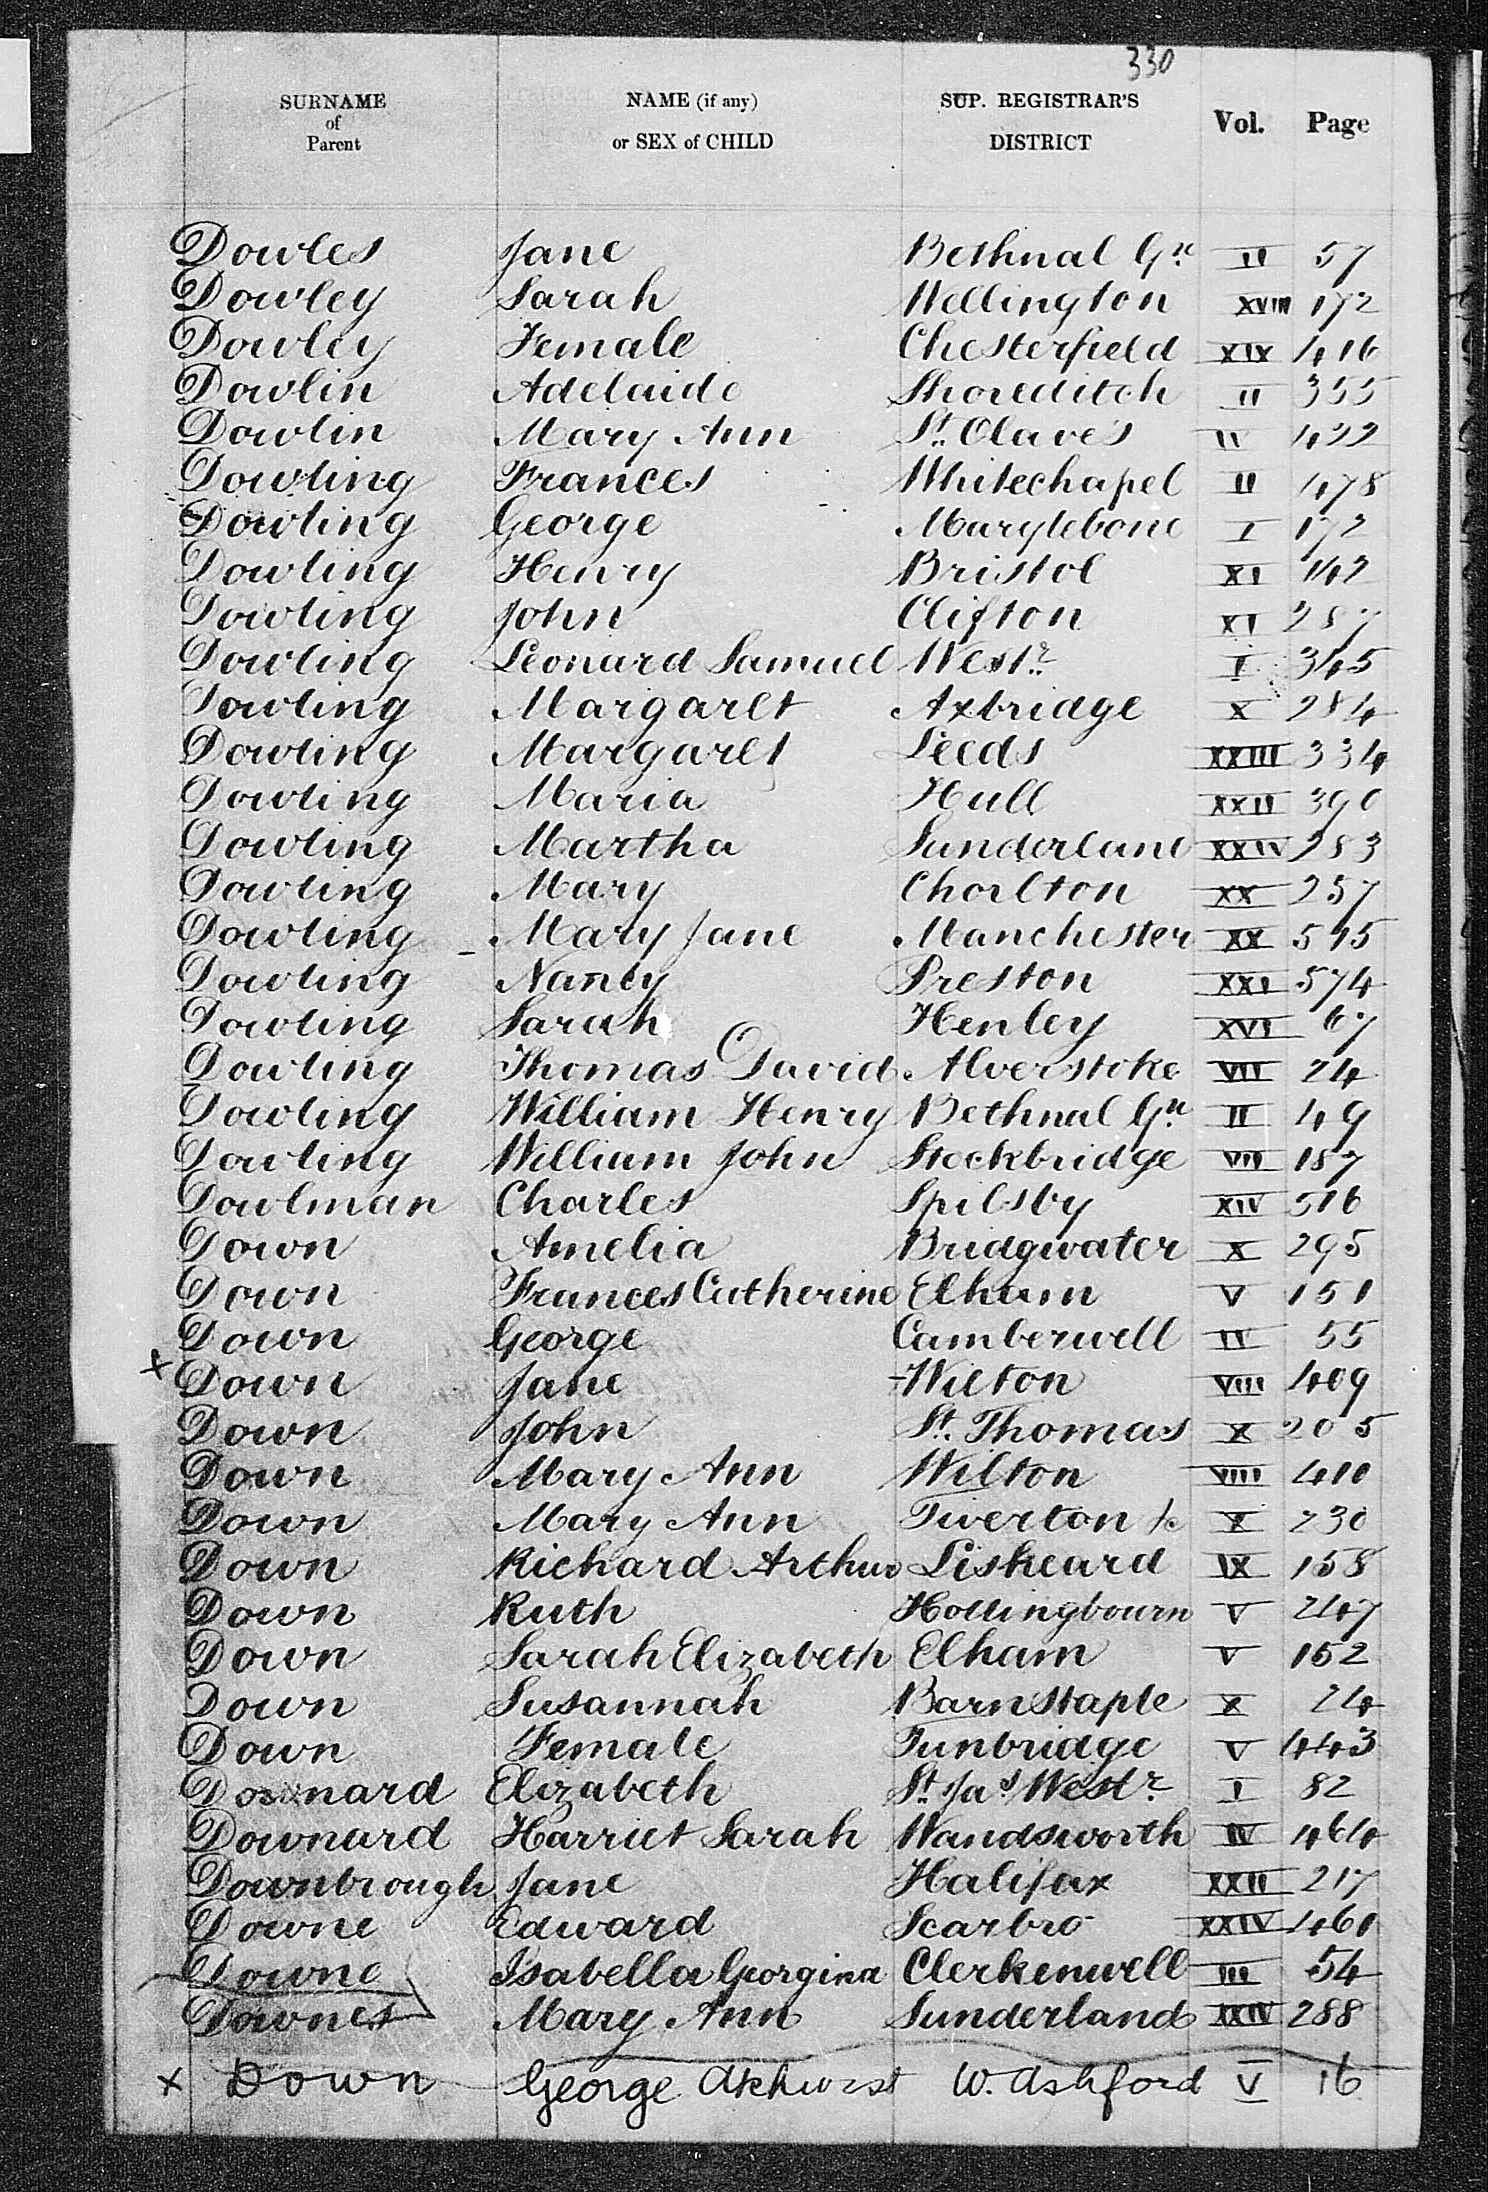 330
SURNAME of Parent NAME (if any) or SEX of CHILD SUP. REGISTRAR'S DISTRICT Vol. Page
Dowles Jane Bethnal Gn II 57
Dowley Sarah Wellington XVIII 172
Dowley Female Chesterfield XIX 416
Dowlin Adelaide Shoreditch II 355
Dowlin Mary Ann St. Olave's IV 422
Dowling Frances Whitechapel II 478
Dowling George Marylebone I 172
Dowling Henry Bristol XI 142
Dowling John Clifton XI 287
Dowling Leonard Samuel Westr I 345
Dowling Margaret Axbridge X 284
Dowling Margaret Leeds XXIII 334
Dowling Maria Hull XXII 390
Dowling Martha Sunderland XXIV 283
Dowling Mary Chorlton XX 257
Dowling Mary Jane Manchester XX 545
Dowling Nancy Preston XXI 574
Dowling Sarah Henley XVI 67
Dowling Thomas David Alverstoke VII 24
Dowling William Henry Bethnal Gn II 49
Dowling William John Stockbridge VII 187
Dowlman Charles Spilsby XIV 516
Down Amelia Bridgwater X 295
Down Frances Catherine Elham V 151
Down George Camberwell IV 55
x Down Jane Wilton VIII 409
Down John St. Thomas X 205
Down Mary Ann Wilton VIII 410
Down Mary Ann Tiverton &c X 230
Down Richard Arthur Liskeard IX 158
Down Ruth Hollingbourn V 247
Down Sarah Elizabeth Elham V 152
Down Susannah Barnstaple X 24
Down Female Tunbridge V 443
Downard Elizabeth St. Jas Westr I 82
Downard Harriet Sarah Wandsworth IV 464
Downbrough Jane Halifax XXII 217
Downe Edward Scarbro XXIV 461
Downe Isabella Georgina Clerkenwell III 54
Downes Mary Ann Sunderland XXIV 288
x Down George Akhurst W. Ashford V 16